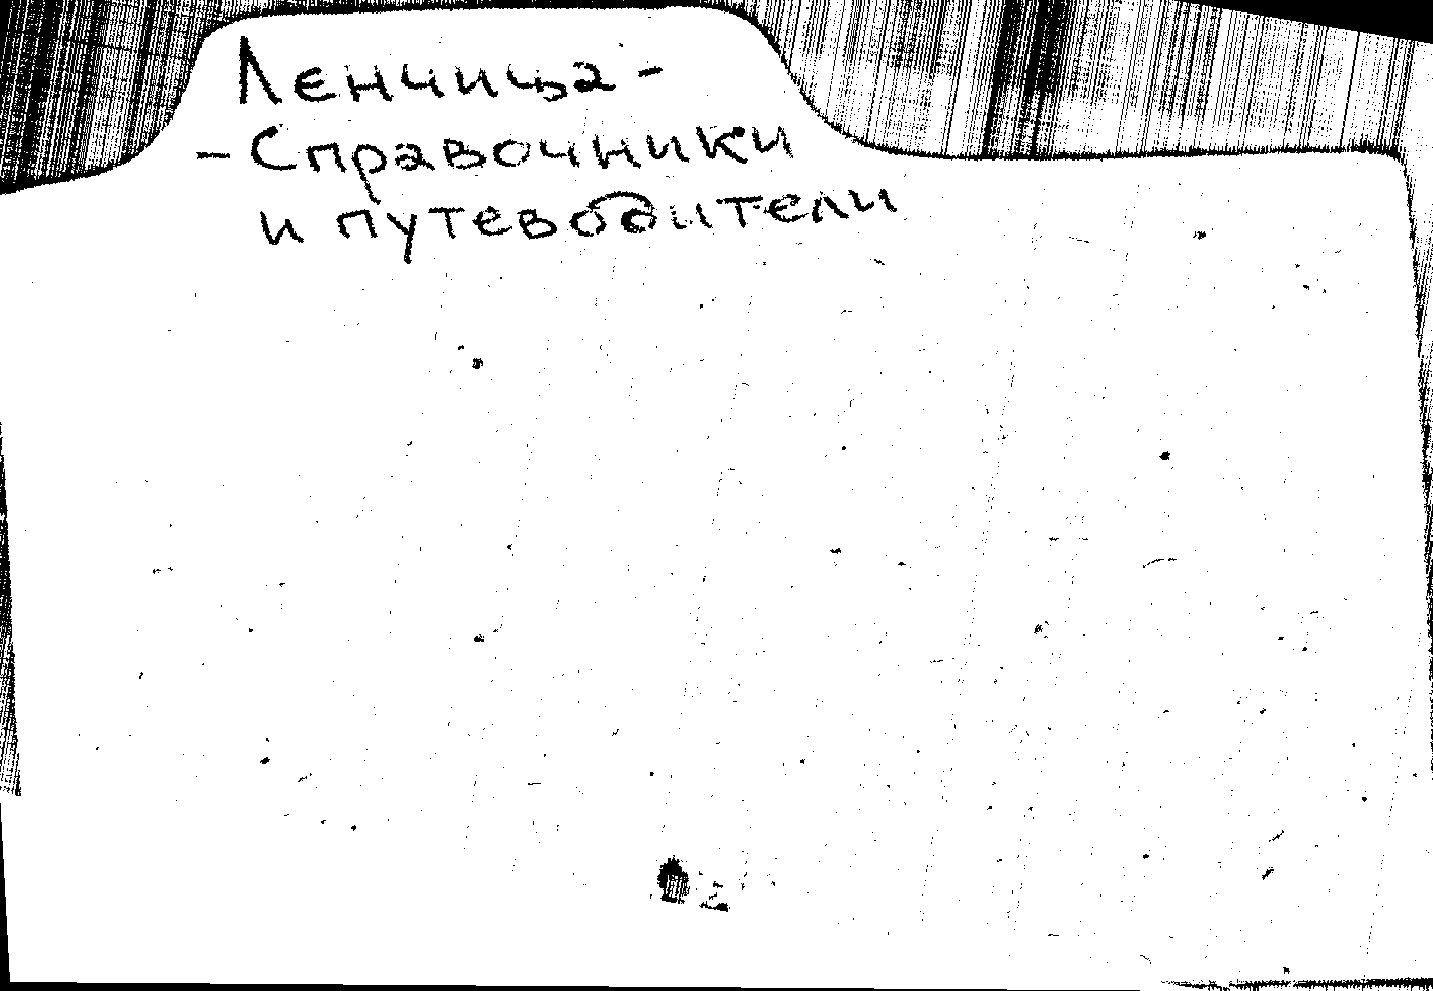 Ленчица -
- Справочники
и путеводители